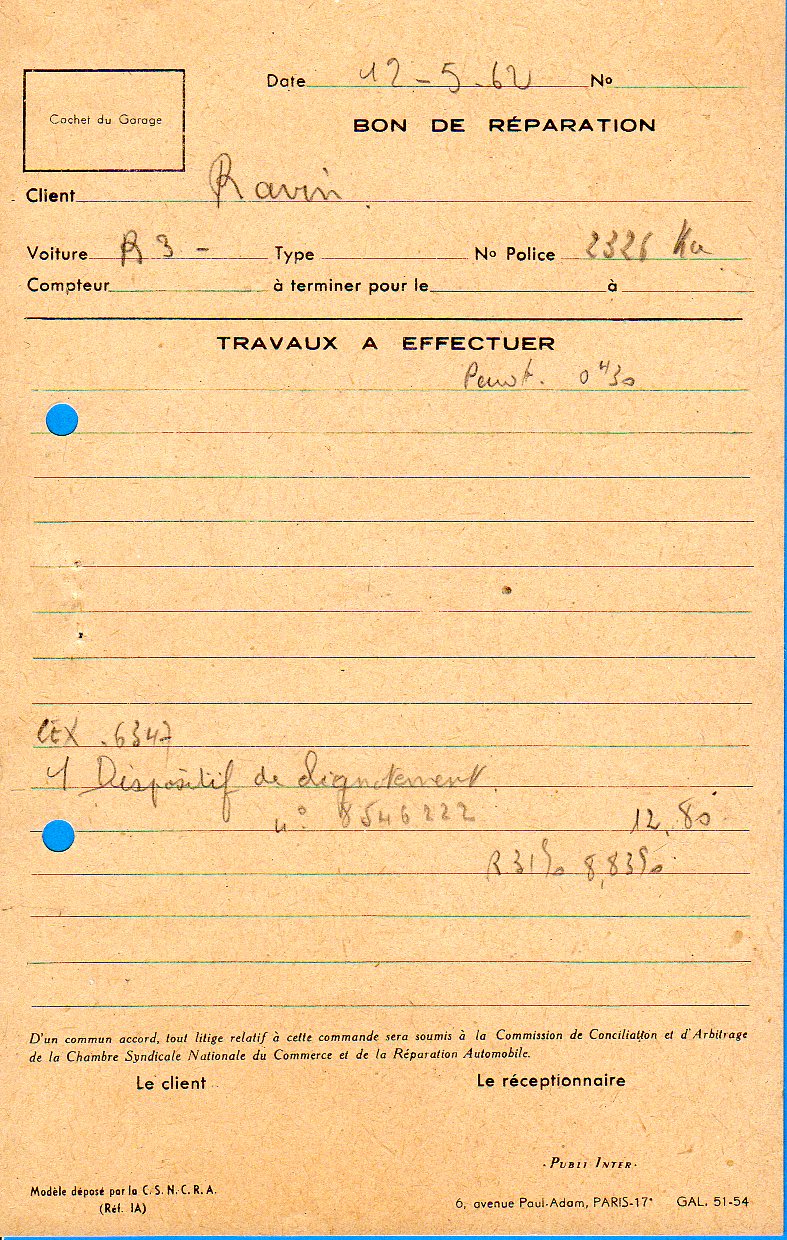 Date 12-5-62 No
Cachet du Garage
BON DE RÉPARATION
Client Ravin
Voiture R3 - Type No Police 2326
Compteur à terminer pour le à
TRAVAUX A EFFECTUER
0H30
CEX. 6347
1 Dispositif de clignotement
n° 8546222 12,80
R 31% 8,83
D'un commun accord, tout litige relatif à cette commande sera soumis à la Commission de Conciliation et d'Arbitrage
de la Chambre Syndicale Nationale du Commerce et de la Réparation Automobile.
Le client Le réceptionnaire
· PUBLI INTER ·
Modèle déposé par la C.S.N.C.R.A.
(Réf. 1A)
6, avenue Paul-Adam, PARIS-17e GAL. 51-54